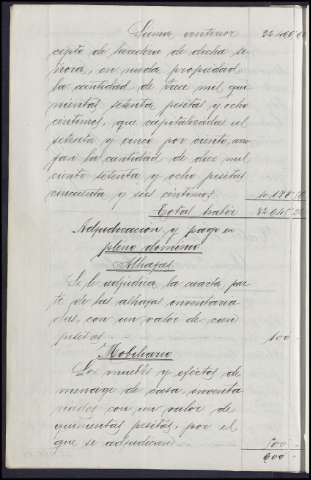 Suma anterior
cepto de heredera de dicha se
ñora, en nuda propiedad
la cantidad de trece mil qui
nientas setenta pesetas y ocho
centimos, que capitalizadas al
setenta y cinco por ciento, arro
jan la cantidad de diez mil
ciento setenta y ocho pesetas
cincuenta y seis centimos. 10.178
Total haber
Adjudicacion y pago en
pleno dominio
Alhajas
Se le adjudica, la cuarta par
te de las alhajas inventaria
das, con un valor de cien
pesetas 100 -
Mobiliario
Los muebles y efectos de
menage de casa inventa
riados con un valor de
quinientas pesetas, por el
que se adjudican 500 -
600 -